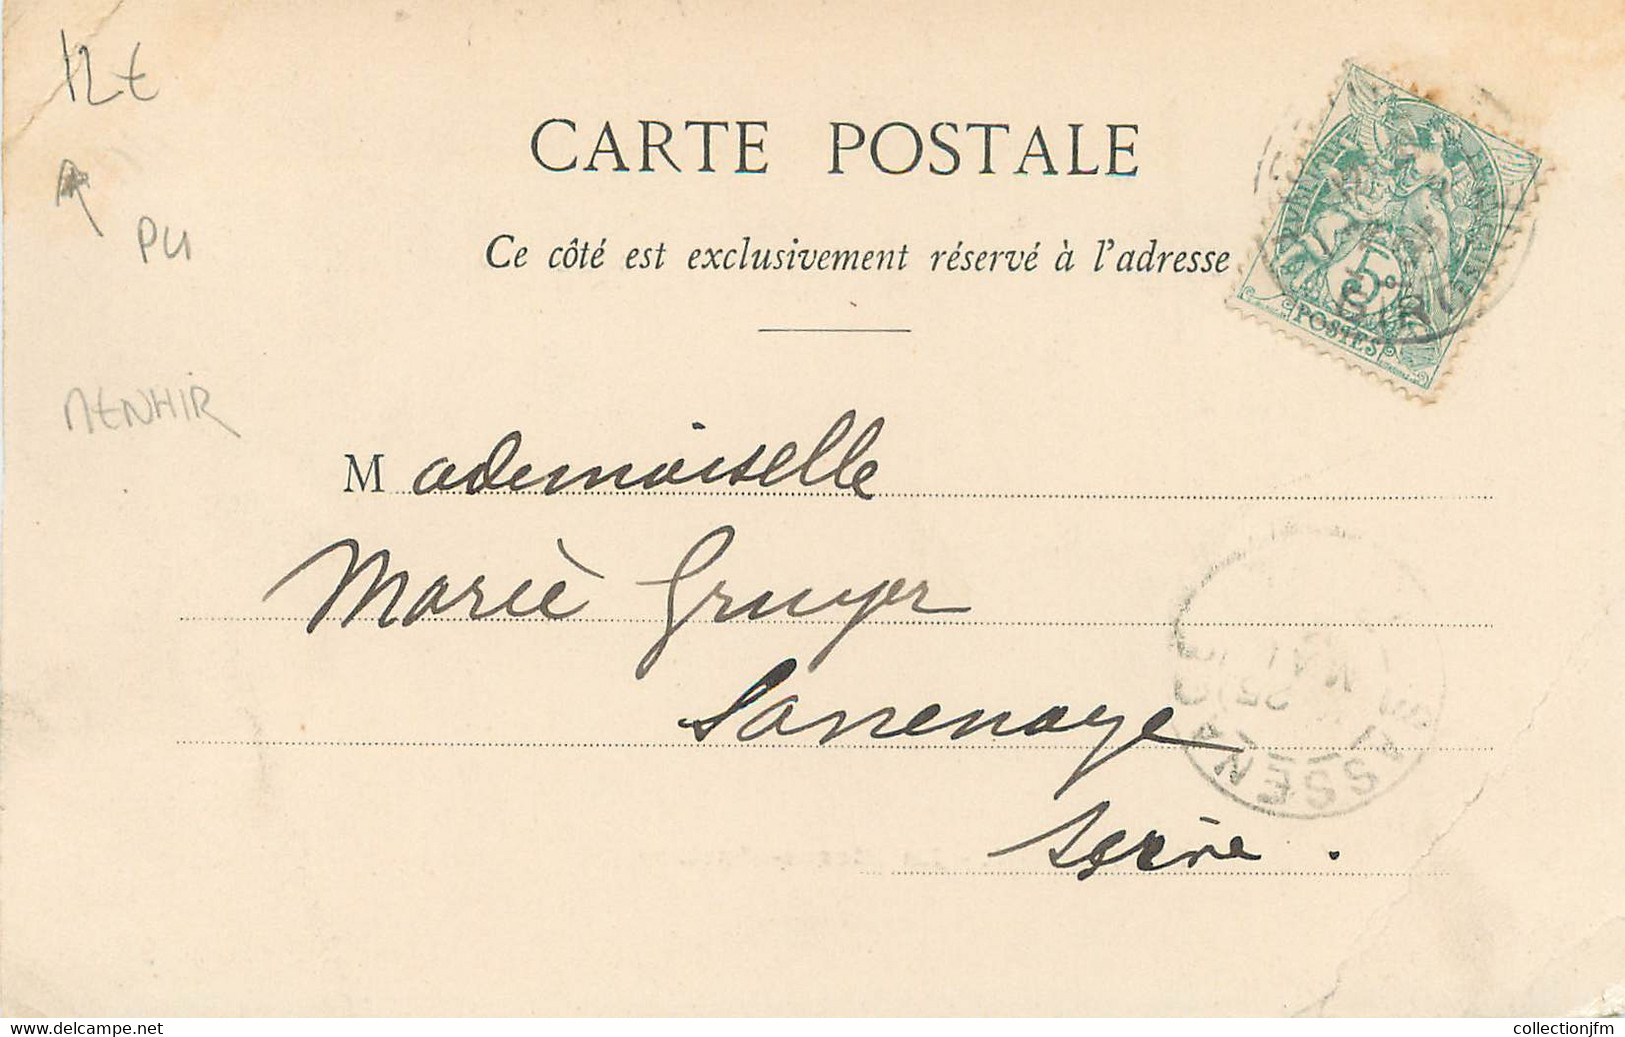 12€
PU
MENHIR
CARTE POSTALE
Ce côté est exclusivement réservé à l'adresse
5c
POSTES
Mademoiselle
Marie Gruyer
Sassenage
Isère.
25
MAI
ASSENA
www.delcampe.net
collectionjfm